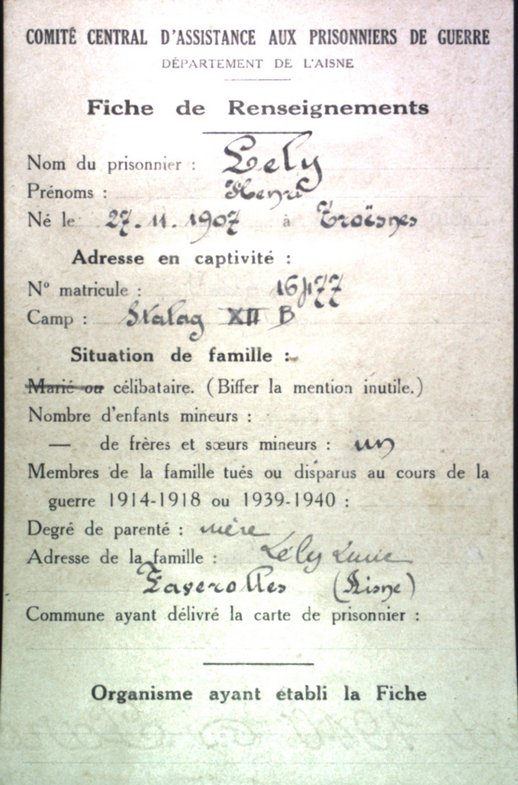 COMITÉ CENTRAL D'ASSISTANCE AUX PRISONNIERS DE GUERRE
DÉPARTEMENT DE L'AISNE
Fiche de Renseignements
Nom du prisonnier : Lely
Prénoms : Henri
Né le 27.11.1907 à Troësnes
Adresse en captivité :
N° matricule :
Camp : Stalag XII B
Situation de famille :
Marié ou célibataire. (Biffer la mention inutile.)
Nombre d'enfants mineurs :
— de frères et sœurs mineurs : un
Membres de la famille tués ou disparus au cours de la
guerre 1914-1918 ou 1939-1940 :
Degré de parenté : mère
Adresse de la famille : Lély
Faverolles (Aisne)
Commune ayant délivré la carte de prisonnier :
Organisme ayant établi la Fiche